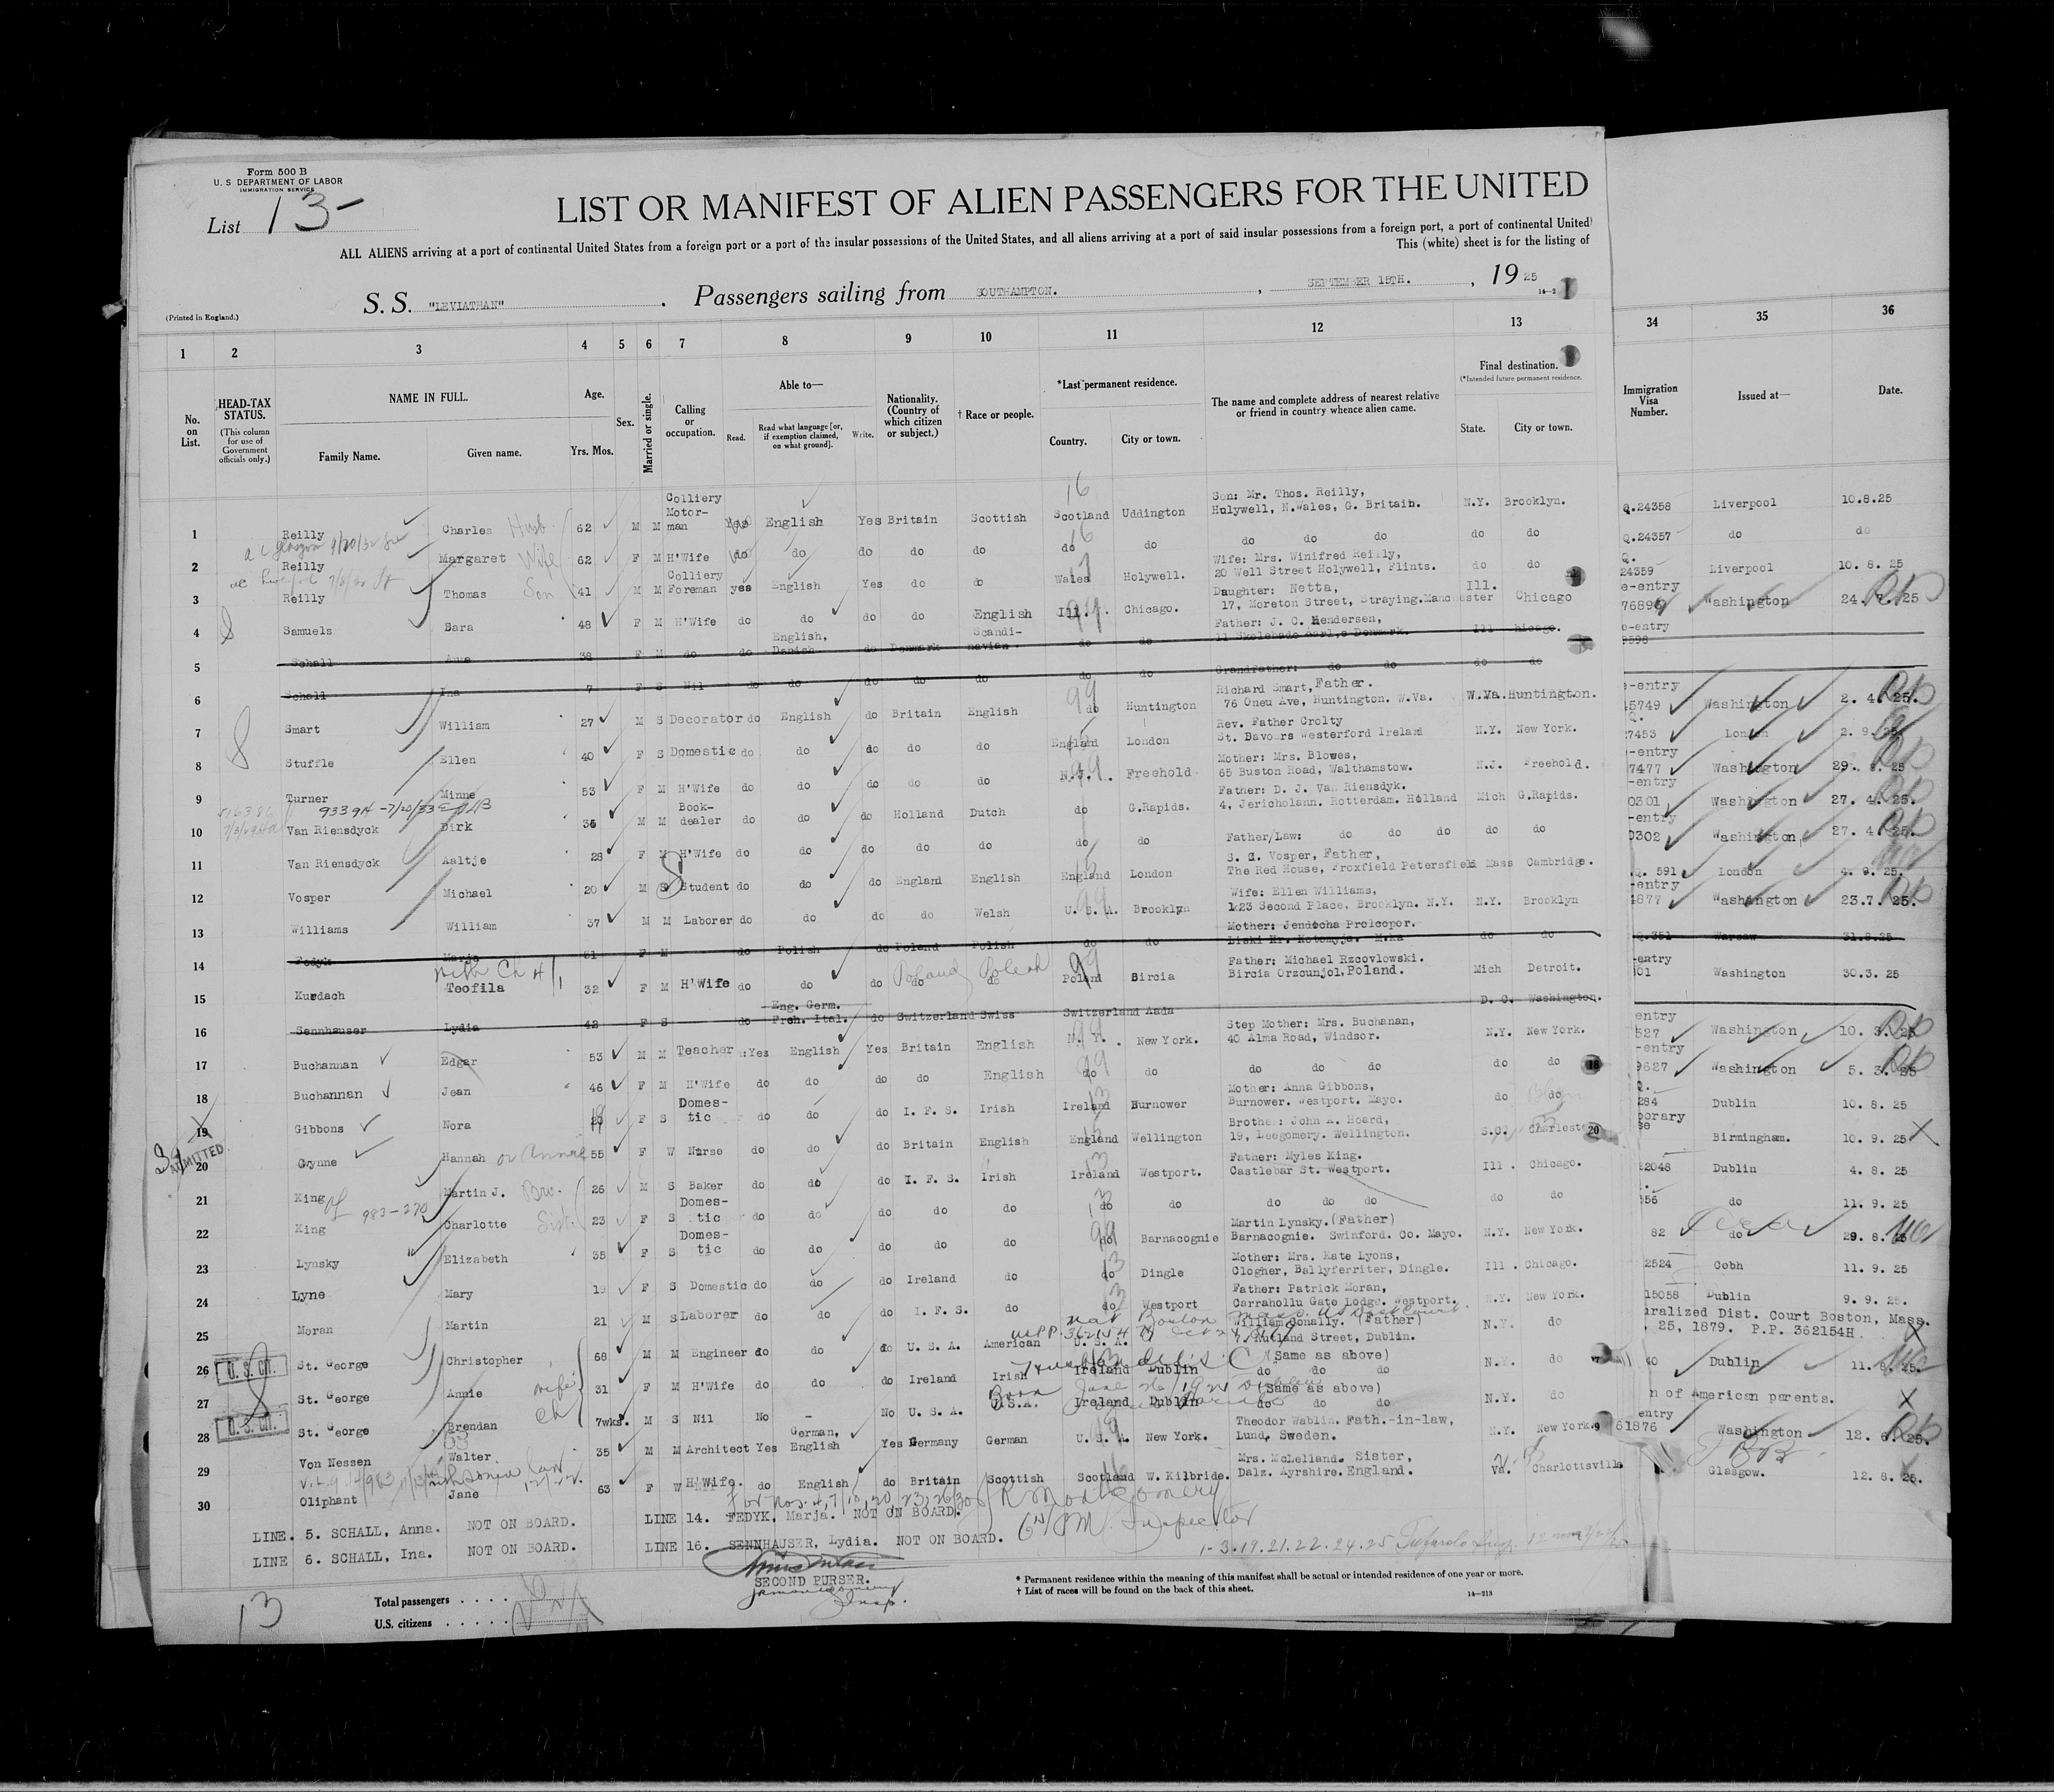 Form 500 B
U. S DEPARTMENT OF LABOR
IMMIGRATION SERVICE
List 13
LIST OR MANIFEST OF ALIEN PASSENGERS FOR THE UNITED
ALL ALIENS arriving at a port of continental United States from a foreign port or a port of the insular possessions of the United States, and all aliens arriving at a port of said insular possessions from a foreign port, a port of continental United
This (white) sheet is for the listing of
S. S. "LEVIATHAN" . Passengers sailing from SOUTHAMPTON. , SEPTEMBER 15TH. , 19 25
(Printed in England.)
1 2 3 4 5 6 7 8 9 10 11 12 13 34 35 36
No. on List.
HEAD-TAX STATUS. (This column for use of Government officials only.)
NAME IN FULL. Family Name. Given name.
Age. Yrs. Mos.
Sex.
Married or single.
Calling or occupation.
Able to— Read. Read what language [or, if exemption claimed, on what ground]. Write.
Nationality. (Country of which citizen or subject.)
† Race or people.
*Last permanent residence. Country. City or town.
The name and complete address of nearest relative or friend in country whence alien came.
Final destination. (*Intended future permanent residence. State. City or town.
Immigration Visa Number.
Issued at—
Date.
1 Reilly Charles Husb 62 M M Colliery Motor-man Yes English Yes Britain Scottish Scotland Uddington Son: Mr. Thos. Reilly, Holywell, N.Wales, G. Britain. N.Y. Brooklyn. Q.24358 Liverpool 10.8.25
2 Reilly Margaret Wife 62 F M H'Wife do do do do do do do do do do do do Q.24357 do do
3 Reilly Thomas Son 41 M M Colliery Foreman yes English Yes do do Wales Holywell. Wife: Mrs. Winifred Reilly, 20 Well Street Holywell, Flints. do do Q. 24359 Liverpool 10. 8. 25
4 Samuels Sara 48 F M H'Wife do do do do English Ill. Chicago. Daughter: Netta, 17, Moreton Street, Straying.Manchester Ill. Chicago e-entry Washington 24. 7. 25
5 Schall 38 F M do do English, Danish do Denmark Scandi-navian. do do Father: J. C. Hendersen, Ill
6 Schall Ina 7 F S Nil do do do do do do do Grandfather: do do do do
7 Smart William 27 M S Decorator do English do Britain English do Huntington Richard Smart, Father. 76 Oneu Ave, Huntington. W.Va. W.Va. Huntington. e-entry 15749 Washington 2. 4. 25.
8 Stuffle Ellen 40 F S Domestic do do do do do England London Rev. Father Crolty St. Bavours Westerford Ireland N.Y. New York. Q. 27453 London 2. 9. 25
9 Turner Minne 53 F M H'Wife do do do do do N.J. Freehold Mother: Mrs. Blowes, 65 Buston Road, Walthamstow. N.J. Freehold. -entry 7477 Washington 29. 8. 25
933 9A -7/20/33
10 Van Riensdyck Dirk 35 M M Book-dealer do do do Holland Dutch do G.Rapids. Father: D. J. Van Riensdyk. 4, Jericholann. Rotterdam. Holland Mich G.Rapids. -entry 0301 Washington 27. 4. 25.
11 Van Riensdyck Aaltje 28 F M H'Wife do do do do do do do Father/Law: do do do do do -entry 0302 Washington 27. 4. 25.
12 Vosper Michael 20 M S Student do do do England English England London S. C. Vosper, Father, The Red House, Froxfield Petersfield Mass Cambridge. Q. 591 London 4. 9. 25.
13 Williams William 37 M M Laborer do do do do Welsh U. S. A. Brooklyn Wife: Ellen Williams, 123 Second Place, Brooklyn. N.Y. N.Y. Brooklyn -entry 4877 Washington 23.7. 25.
14 Fedyk Marja 61 F M do Polish do Poland Polish do do Mother: Jendocha Prolcopor. do do Q.351 Warsaw 31.8.25
15 Kurdach Teofila 32 F M H'Wife do do do do Poland do Polish Poland Bircia Father: Michael Rzcovlowski. Bircia Orzcunjol, Poland. Mich Detroit. -entry 01 Washington 30.3. 25
16 Sennhauser Lydia 42 F S do Eng. Germ. Frch. Ital. do Switzerland Swiss Switzerland Aada D. C. Washington.
17 Buchannan Edgar 53 M M Teacher Yes English Yes Britain English N. Y. New York. Step Mother: Mrs. Buchanan, 40 Alma Road, Windsor. N.Y. New York. entry 527 Washington 10. 3. 25
18 Buchannan Jean 46 F M H'Wife do do do do English do do do do do do do -entry 9627 Washington 5. 3. 25
19 Gibbons Nora F S Domes-tic do do do I. F. S. Irish Ireland Burnower Mother: Anna Gibbons, Burnower. Westport. Mayo. do do Q. 284 Dublin 10. 8. 25
ADMITTED
20 Gwynne Hannah or Annie 55 F W Nurse do do do Britain English England Wellington Brother: John A. Hoard, 19, Leegomery. Wellington. S.C. Charlest porary se Birmingham. 10. 9. 25
21 King Martin J. Bro. 26 M S Baker do do do I. F. S. Irish Ireland Westport. Father: Myles King. Castlebar St. Westport. Ill. Chicago. 22048 Dublin 4. 8. 25
983-270
22 King Charlotte Sist. 23 F S Domes-tic do do do do do do do do do do do do 356 do 11. 9. 25
23 Lynsky Elizabeth 35 F S Domes-tic do do do do do do Barnacognie Martin Lynsky. (Father) Barnacognie. Swinford. Co. Mayo. N.Y. New York. 82 do 29. 8.
24 Lyne Mary 19 F S Domestic do do do Ireland do do Dingle Mother: Mrs. Kate Lyons, Clogher, Ballyferriter, Dingle. Ill. Chicago. 2524 Cobh 11. 9. 25
25 Moran Martin 21 M S Laborer do do do I. F. S. do do Westport Father: Patrick Moran, Carrahollu Gate Lodge. Westport. N.Y. New York. 15058 Dublin 9. 9. 25.
26 U. S. CIT. St. George Christopher 68 M M Engineer do do do U. S. A. American U. S. A. William Conally. (Father) 7, Rutland Street, Dublin. N.Y. do uralized Dist. Court Boston, Mass. . 25, 1879. P.P. 362154H .
27 St. George Annie wife 31 F M H'Wife do do do Ireland Irish Ireland Dublin (Same as above) do do do N.Y. do 40 Dublin 11. 8. 25.
28 U. S. CIT. St. George Brendan Ch 7wks. M S Nil No - No U. S. A. U.S.A. Ireland Dublin (Same as above) do do do N.Y. do n of American parents.
29 Von Nessen Walter 35 M M Architect Yes German, English Yes Germany German U. S. A. New York. Theodor Wablin. Fath.-in-law, Lund, Sweden. N.Y. New York. entry 61876 Washington 12. 6. 25.
30 Oliphant Jane 63 F W H'Wife. do English do Britain Scottish Scotland W. Kilbride. Mrs. McLelland. Sister, Dalz. Ayrshire. England. Va. Charlottsville Glasgow. 12. 8. 25.
R Montgomery
Inspector
LINE. 5. SCHALL, Anna. NOT ON BOARD. LINE 14. FEDYK, Marja. NOT ON BOARD.
LINE 6. SCHALL, Ina. NOT ON BOARD. LINE 16. SENNHAUSER, Lydia. NOT ON BOARD.
SECOND PURSER.
* Permanent residence within the meaning of this manifest shall be actual or intended residence of one year or more.
† List of races will be found on the back of this sheet.
14—213
13
Total passengers . . . . .
U.S. citizens . . . . . .